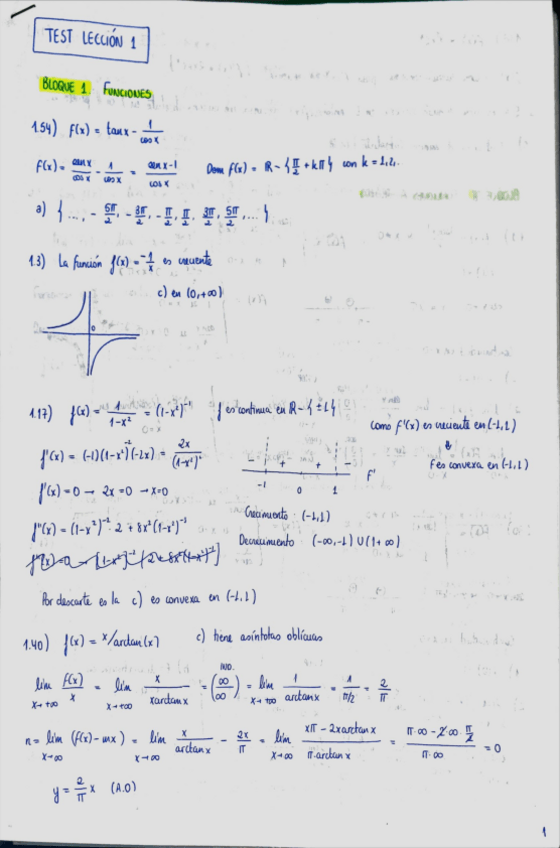 TEST LECCIÓN 1
BLOQUE 1. FUNCIONES
1.54) f(x) = tanx - 1/cosx
f(x) = senx/cosx - 1/cosx = senx-1/cosx Dom f(x) = R - {π/2 + kπ} con k = 1,2..
a) {..., -5π/2, -3π/2, -π/2, π/2, 3π/2, 5π/2, ...}
1.3) La función f(x) = -1/x es creciente
c) en (0,+∞)
0
1.17) f(x) = 1/1-x² = (1-x²)⁻¹ f es continua en R - {±1}
como f'(x) es creciente en (-1,1)
f'(x) = (-1)(1-x²)⁻²(-2x) = 2x/(1-x²)²
f es convexa en (-1,1)
- + + - F'
-1 0 1
f'(x) = 0 → 2x = 0 → x=0
Crecimiento: (-1,1)
f''(x) = (1-x²)⁻² · 2 + 8x²(1-x²)⁻³
Decrecimiento (-∞,-1) U (1+∞)
Por descarte es la c) es convexa en (-1,1)
1.40) f(x) = x/arctan(x) c) tiene asíntotas oblicuas
lim x→+∞ f(x)/x = lim x→+∞ x/xarctanx = (∞/∞) IND. = lim x→+∞ 1/arctanx = 1/π/2 = 2/π
n = lim x→∞ (f(x) - mx) = lim x→∞ x/arctanx - 2x/π = lim x→∞ xπ - 2xarctanx/π·arctanx = π·∞ - 2·∞·π/2/π·∞ = 0
y = 2/π x (A.O)
1